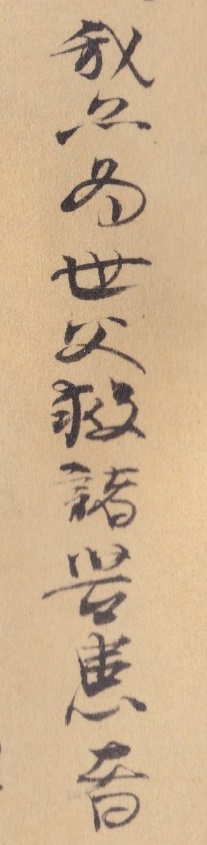 我亦為世父救諸苦患者